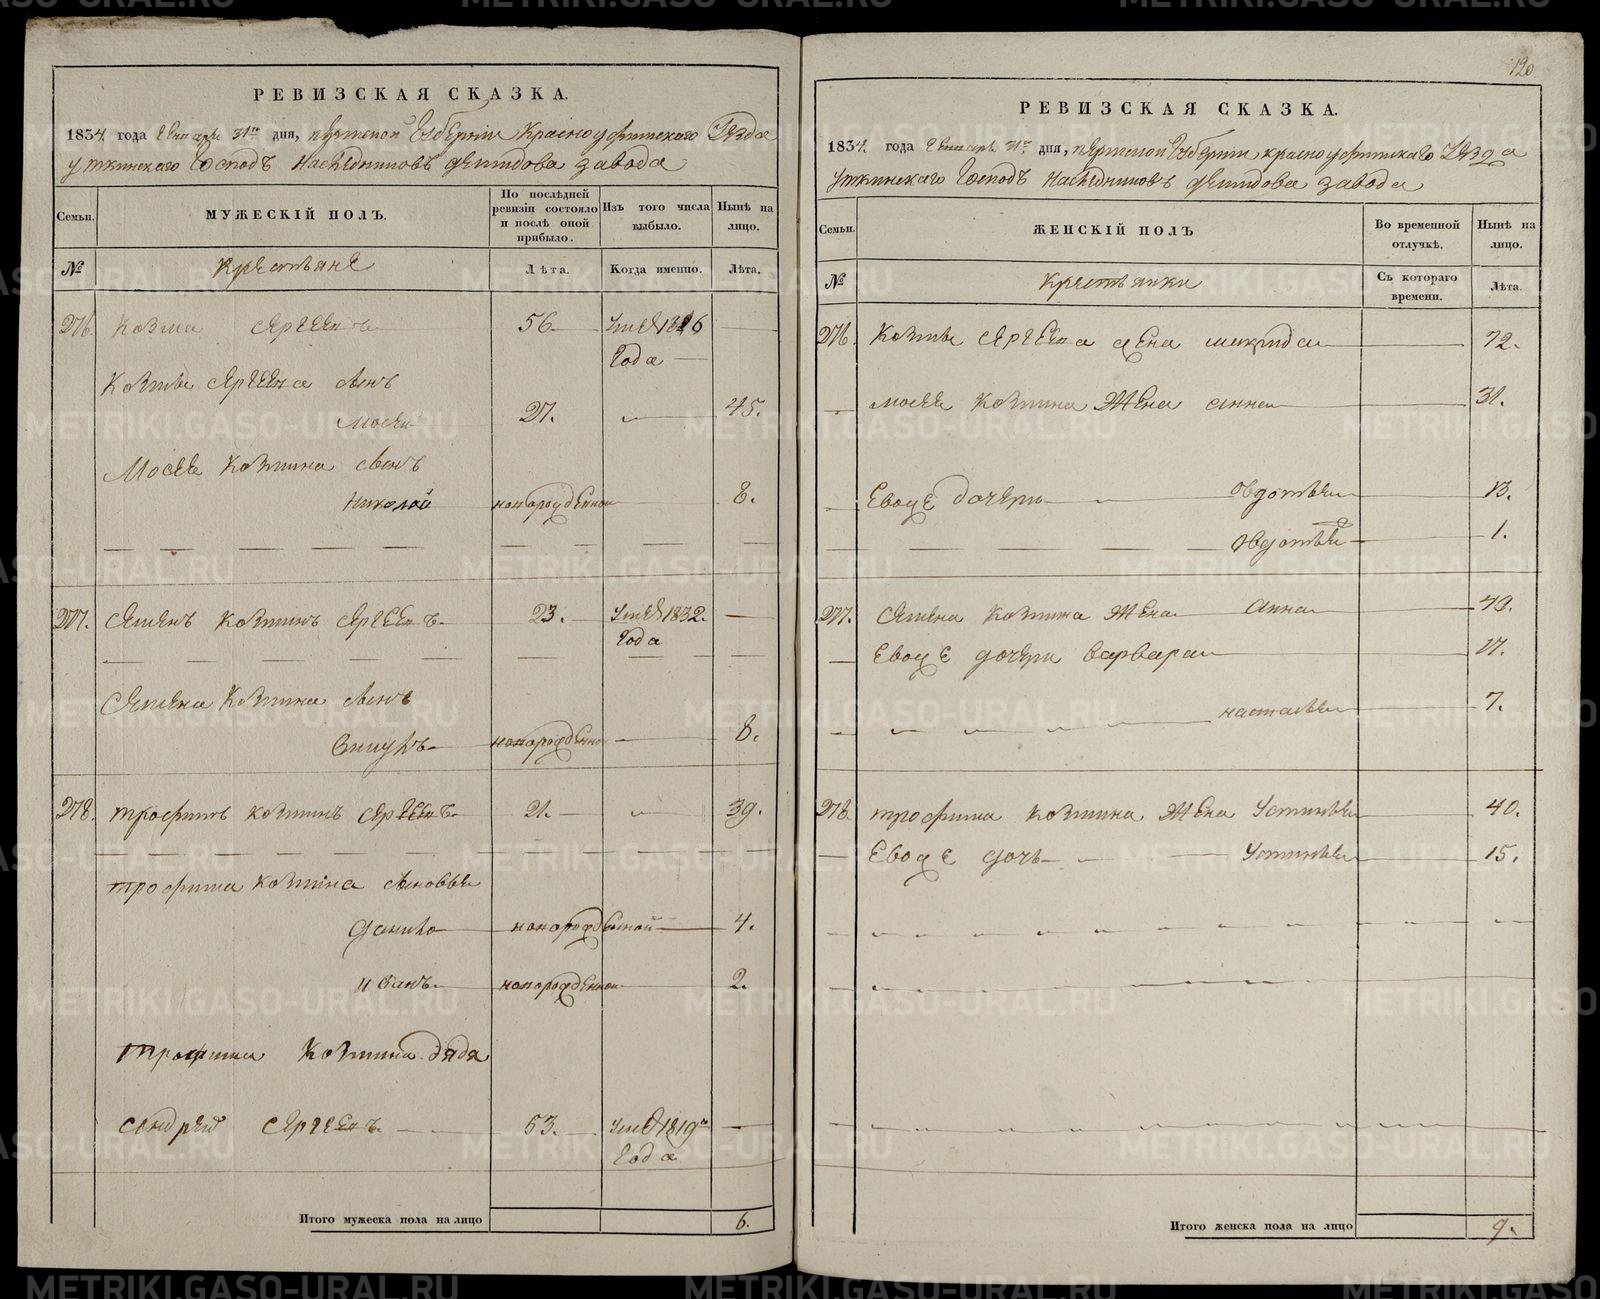 РЕВИЗСКАЯ СКАЗКА.
1834 года Генваря 31го дня, пермской Губернии Красноуфимскаго Уезда
уткинскаго Господъ Наследниковъ демидова завода
Семьи.
МУЖЕСКІЙ ПОЛЪ.
По послѣдней ревизіи состояло и послѣ оной прибыло.
Изъ того числа выбыло.
Нынѣ на лицо.
№
Крестьяне
Лѣта.
Когда именно.
Лѣта.
276. Козма Сергеевъ 56. Умеръ 1816
Года
Козмы Сергеева сынъ
Мосей 27. 45.
Мосея Козмина сынъ
Николай новорожденной 8.
277. Семенъ Козминъ Сергеевъ 23. Умеръ 1832.
Года
Семена Козмина сынъ
Викулъ новорожденной 8.
278. трофимъ Козминъ Сергеевъ 21. 39.
трофима Козмина сыновья
Данило новорожденной 4.
Иванъ новорожденной 2.
трофима Козмина дядя
Андрей Сергеевъ 53. Умеръ 1819го
Года
Итого мужеска пола на лицо 6.
120
РЕВИЗСКАЯ СКАЗКА.
1834. года Генваря 31го дня, пермской Губернии красноуфимскаго Уезда
уткинскаго Господъ Наследниковъ демидова завода
Семьи.
ЖЕНСКІЙ ПОЛЪ
Во временной отлучкѣ.
Нынѣ на лицо.
№
Крестьянки
Съ котораго времени.
Лѣта.
276. Козмы Сергеева жена макрида 72.
мосея Козмина Жена анна 31.
Евоже дочери овдотья 13.
овдотья 1.
277. Семена Козмина Жена Анна 49.
Евоже дочери варвара 17.
настасья 7.
278. трофима Козмина Жена Устинья 40.
Евоже дочь Устинья 15.
Итого женска пола на лицо 9.
METRIKI.GASO-URAL.RU